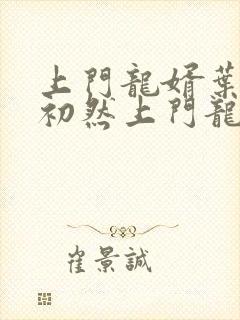 上門龍婿葉
初然上門龍
崔景誠